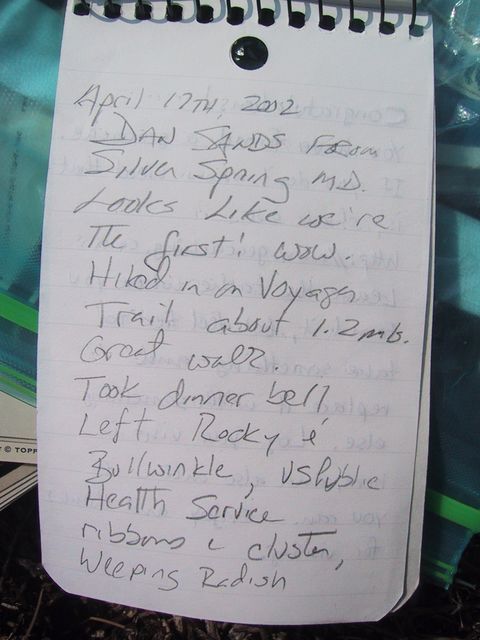 April 17TH, 2002
DAN SANDS From
Silver Spring M.D.
Looks Like we're
The first! wow.
Hiked in on Voyager
Trail about 1.2 mls.
Great walk.
Took dinner bell
Left Rocky &
Bullwinkle, US Public
Health Service
ribbons & cluster,
Weeping Radish
© TOPP